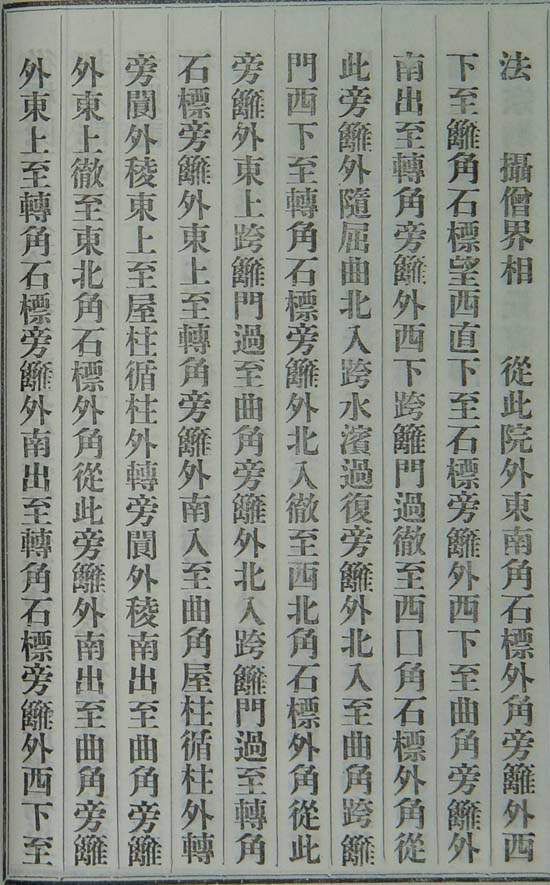 法　攝僧界相　從此院外東南角石標外角旁籬外西
下至籬角石標望西直下至石標旁籬外西下至曲角旁籬外
南出至轉角旁籬外西下跨籬門過徹至西口角石標外角從
此旁籬外隨屈曲北入跨水濱過復旁籬外北入至曲角跨籬
門西下至轉角石標旁籬外北入徹至西北角石標外角從此
旁籬外東上跨籬門過至曲角旁籬外北入跨籬門過至轉角
石標旁籬外東上至轉角旁籬外南入至曲角屋柱循柱外轉
旁閬外稜東上至屋柱循柱外轉旁閬外稜南出至曲角旁籬
外東上徹至東北角石標外角從此旁籬外南出至曲角旁籬
外東上至轉角石標旁籬外南出至轉角石標旁籬外西下至